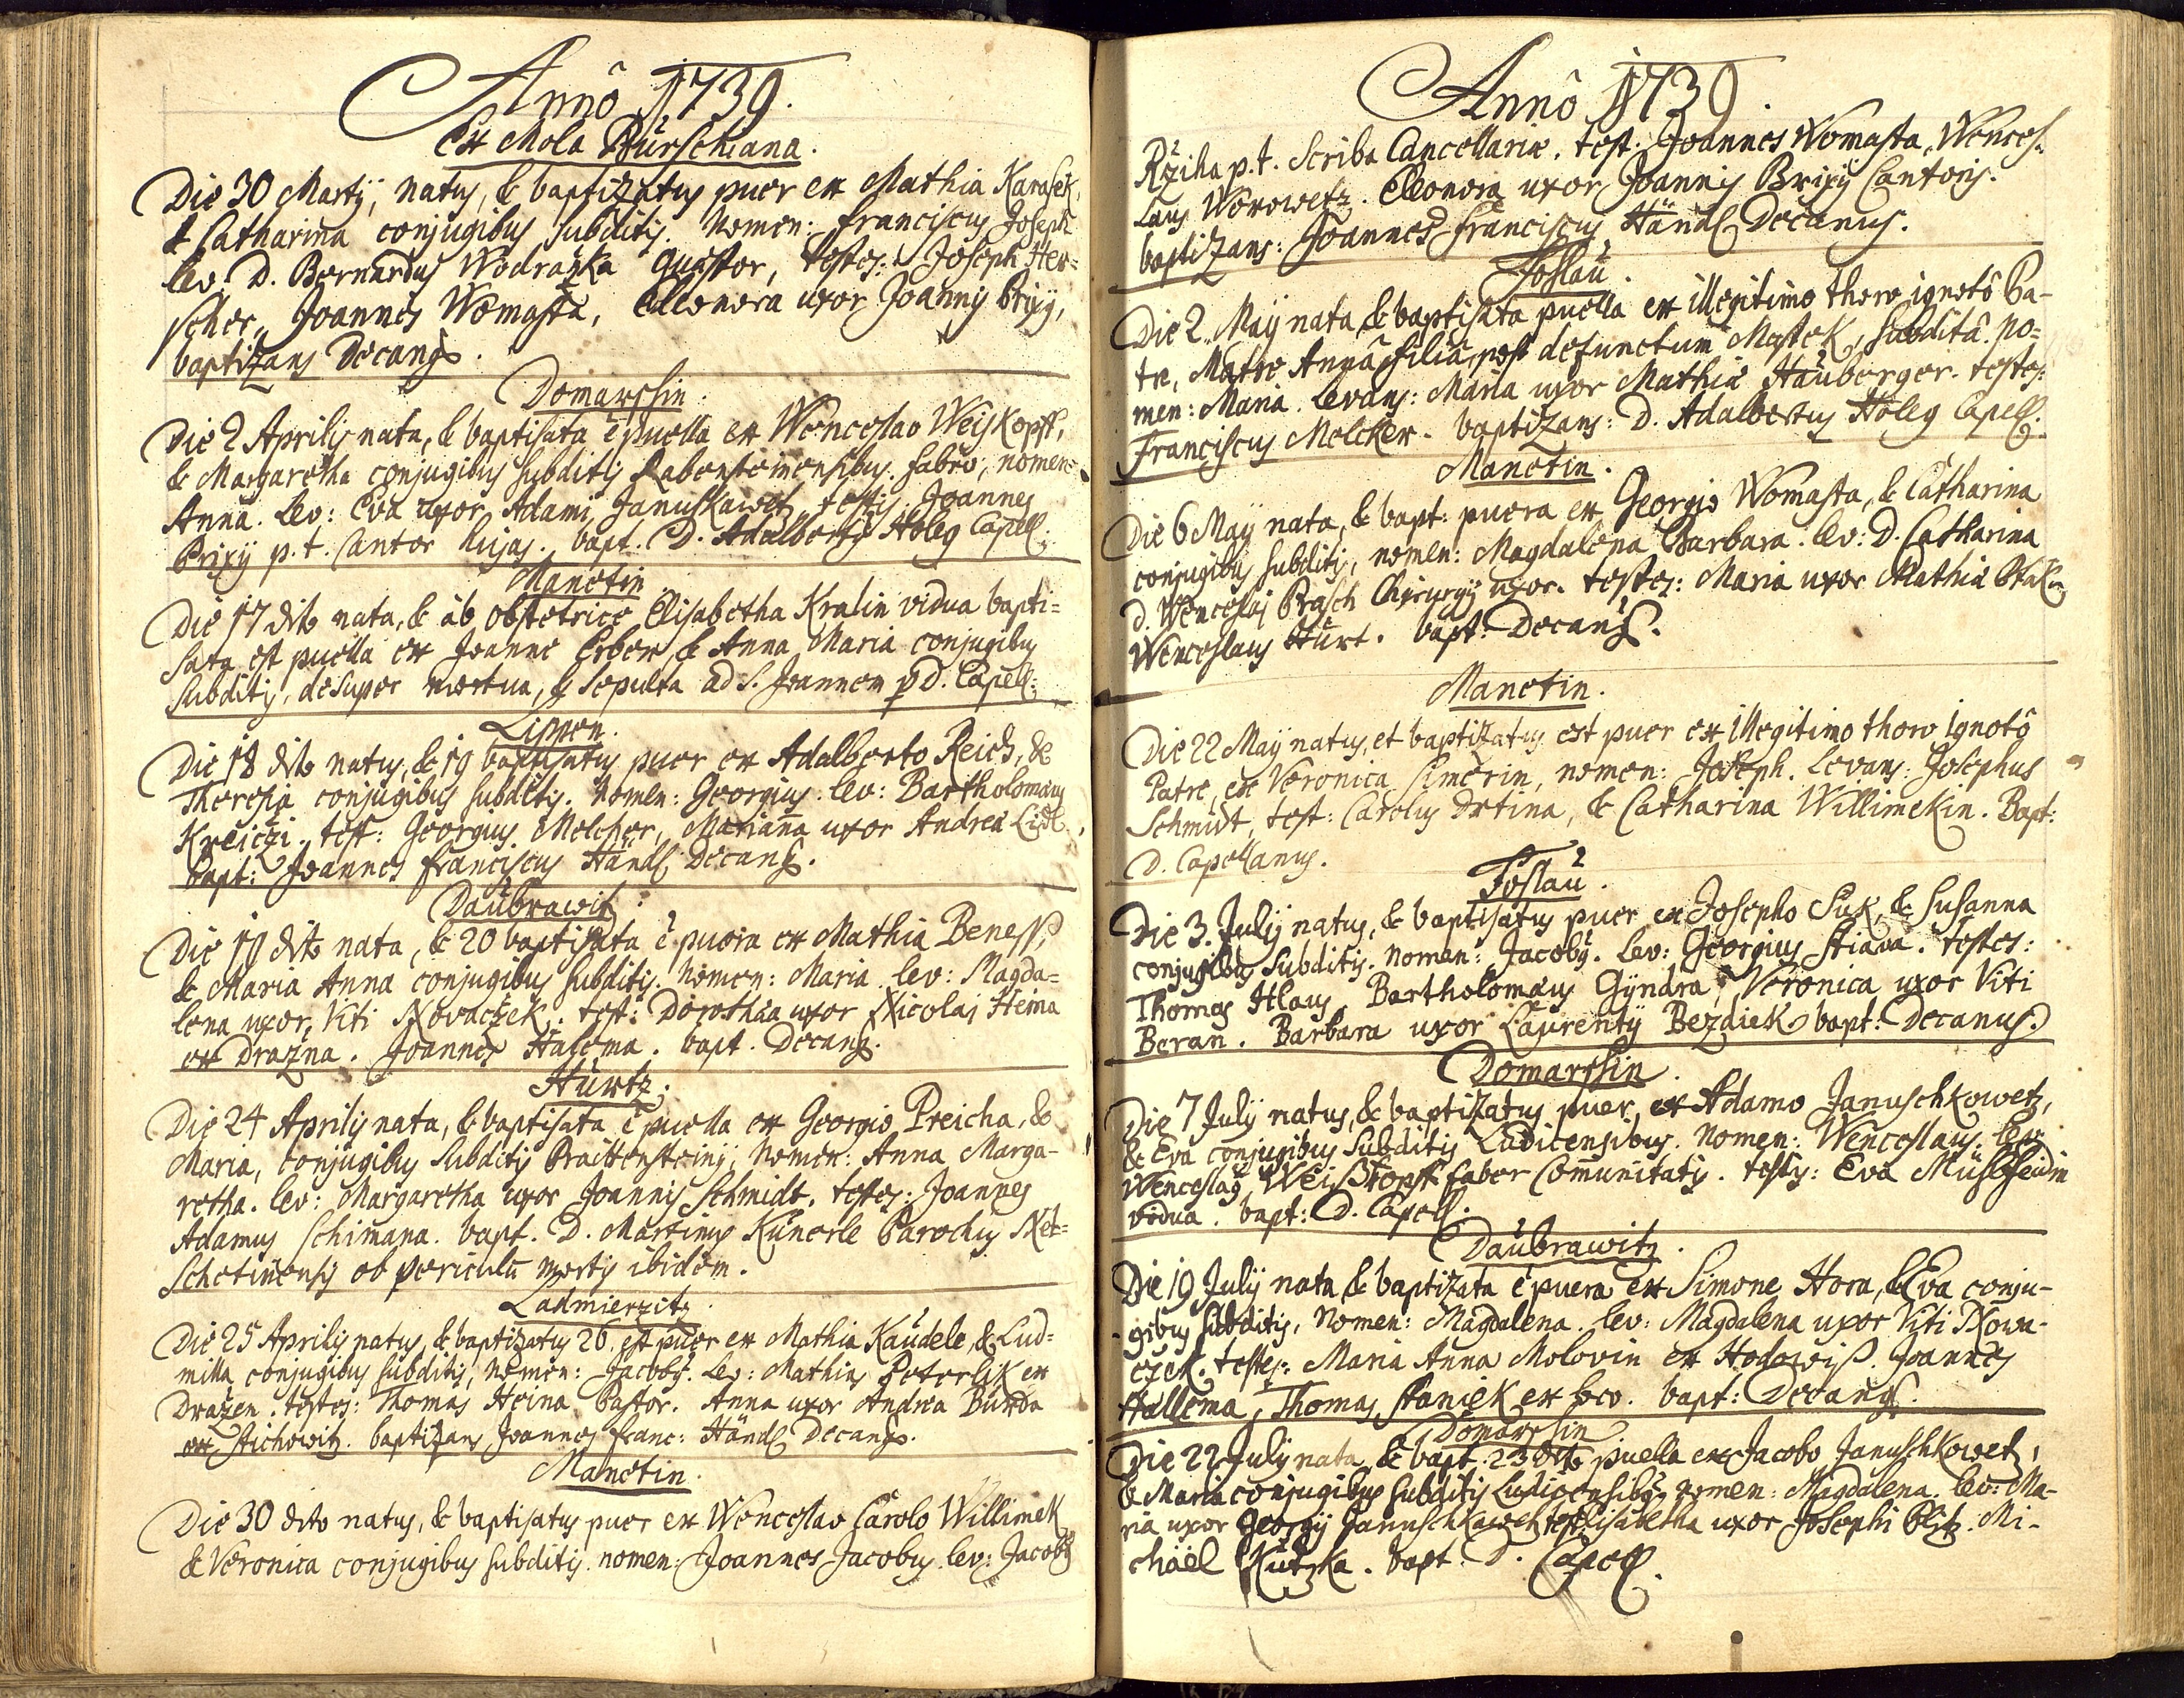 Annô 1739.
Ex Mola Bürschiana.
Die 30 Martÿ, natus, & baptizatus puer ex Mathia Karasek,
& Catharina conjugibus subditis. Nomen: Franciscus Joseph
lev. D. Bernardus Wodražka quæstor, testes: Joseph Her=
scher, Joannes Womasta, Eleonora uxor Joannis Brixÿ,
baptizans Decanus.
Domarssin.
Die 2 Aprilis nata, & baptisata ē puella ex Wenceslao Weiskopff,
& Margaretha conjugibus subditis Rabensteinensibus. fabro, nomen
Anna. Lev: Eva uxor Adami Januskawetz, testis, Joannes
Brixÿ p.t. Cantor hujas. bapt. D. Adalbertus Holeg Capell.
Manetin
Die 17 dito nata, & ab obstetrice Elisabetha Kralin vidua bapti=
sata est puella ex Joanne Erber & Anna Maria conjugibus
subditis, desuper mortua, & sepulta ad S. Joannem p D. Capell:
Lipen.
Die 18 dito natus, & 19 baptisatus puer ex Adalberto Reich, &
Theresia conjugibus subditis. Nomen: Georgius. lev: Bartholomæus
Kreiczi. test: Georgius Melcher, Marianna uxor Andreæ Lidl.
bapt: Joannes Franciscus Händl Decanus.
Daubrawitz
Die 19 dito nata, & 20 baptisata ē puera ex Mathia Beness,
& Maria Anna conjugibus subditis. Nomen: Maria. lev: Magda=
lena uxor Viti Nowaczek. test: Dorothæa uxor Nicolai Hema
ex Drazna. Joannes Halema. bapt. Decanus.
Hürtz.
Die 24 Aprilis nata, & baptisata ē puella ex Georgio Preicha, &
Maria, conjugibus subditis Praittensteinis, Nomen: Anna Marga-
retha. lev: Margaretha uxor Joannis Schmidt. testes: Joannes
Adamus Schimana. bapt. D. Martinus Künerle Parochus Net=
schetinensis ob periculū mortis ibidem.
Ladmierzitz
Die 25 Aprilis natus, & baptizatus 26. est puer ex Mathia Kaudele, & Lud=
milla conjugibus subditis, nomen: Jacobus. Lev: Mathias Peterlik ex
Dražen. testes: Thomas Heina Pastor. Anna uxor Andreæ Burda
ex Stichowitz. baptizans Joannes Franc: Händl Decanus.
Manetin.
Die 30 dito natus, & baptisatus puer ex Wenceslao Carolo Willimek
& Veronica conjugibus subditis. nomen: Joannes Jacobus. lev: Jacobus
Annô 1739.
Rziha p.t. Scriba Cancellariæ. test: Joannes Womasta, Wences=
laus Worowetz. Eleonora uxor Joannis Brixÿ Cantoris.
baptizans: Joannes Franciscus Händl Decanus.
Foslau.
Die 2. Maÿ nata & baptisata puella ex illegitimo thoro, ignotô Pa-
tre, Matre Annâ filiâ post defunctum Mastek, subditâ. No=
men: Maria. Levans: Maria uxor Mathiæ Hauberger. testes:
Franciscus Melcker. baptizans: D. Adalbertus Holeg Capell.
Manetin.
Die 6 Maÿ nata, & bapt: puera ex Georgio Womasta, & Catharina
conjugibus subditis, nomen: Magdalena Barbara. lev: D. Catharina
d. Wenceslai Prasch Chyrurgi uxor. testes: Maria uxor Mathiæ
Wenceslaus Hürt. bapt: Decanus.
Manetin.
Die 22 Maÿ natus, et baptizatus est puer ex illegitimo thoro ignotô
Patre, ex Veronica Simerin, nomen: Joseph. Levans: Josephus
Schmidt, test: Carolus Drtina, & Catharina Willimekin. Bapt:
D. Capellanus.
Foslau.
Die 3. Julÿ natus, & baptisatus puer ex Josepho Suk, & Susanna
conjugibus subditis. Nomen: Jacobus. Lev: Georgius Stiawa. testes:
Thomas Hlaus, Bartholomæus Gÿndra, Veronica uxor Viti
Beran. Barbara uxor Laurentÿ Bezdiek. bapt: Decanus.
Domarssin.
Die 7 Julÿ natus, & baptizatus puer, ex Adamo Januschkowetz,
& Eva conjugibus subditis Ludicensibus. Nomen: Wenceslaus. lev:
Wenceslaus Weißkopff faber Comunitatis. testis: Eva Mühlfeidin
vidua. bapt: D. Capell.
Daubrawitz.
Die 19 Julÿ nata & baptizata ē puera ex Simone Hora, & Eva conju-
gibus subditis, Nomen: Magdalena. lev: Magdalena uxor Viti Nowa-
czek. testes: Maria Anna Molovin ex Hodowiß. Joannes
Hallema, Thomas Staniek ex loco. bapt: Decanus.
Domarssin
Die 22 Julÿ nata, & bapt. 23 dito puella ex Jacobo Januschkowetz,
& Maria conjugibus subditis Ludicensibus, nomen: Magdalena. lev: Ma-
ria uxor Georgÿ Januschkawetz, test: Elisabetha uxor Josephi Plitz. Mi-
chäel Kutzka. bapt. D. Capell.